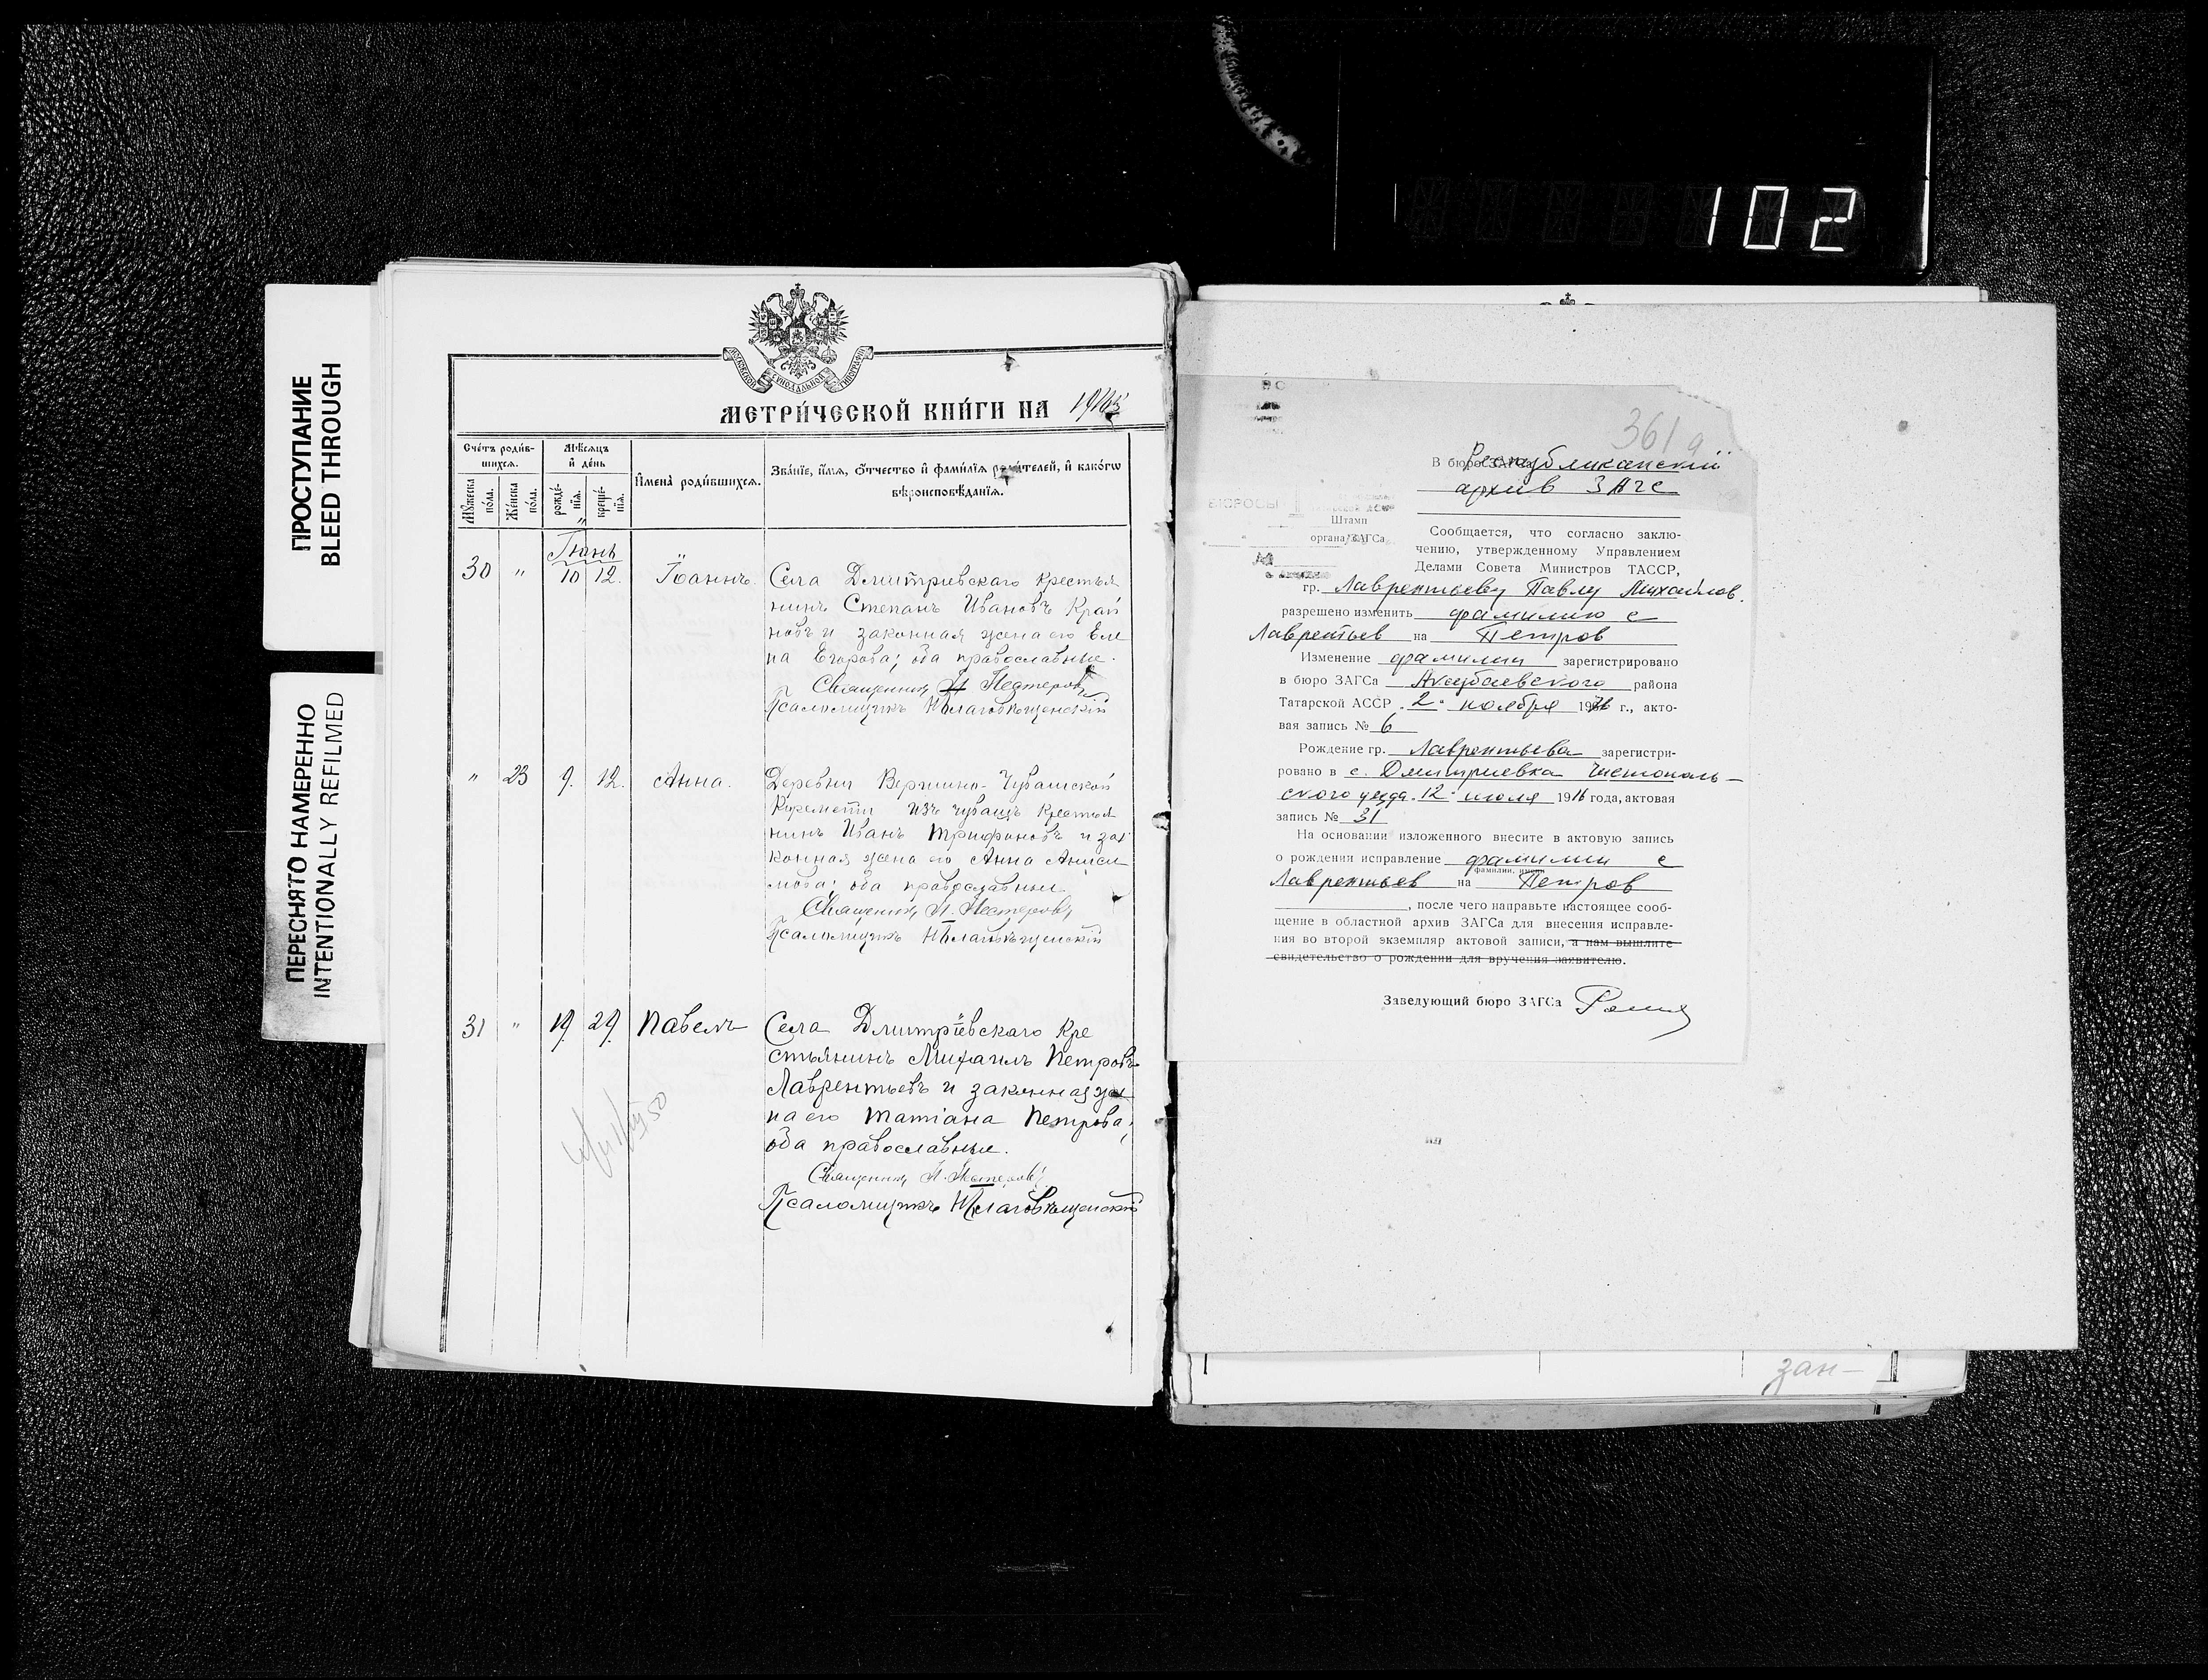 102
ПРОСТУПАНИЕ
BLEED THROUGH
ПЕРЕСНЯТО НАМЕРЕННО
INTENTIONALLY REFILMED
МОСКОВСКОЙ СѴНОДАЛЬНОЙ ТИПОГРАФІИ
МЕТРИ́ЧЕСКОЙ КНИ́ГИ НА
Сче́тъ роди́в-
шихся.
Мѣ́сяцъ
и де́нь
Мꙋ́жеска
по́ла.
Же́нска
по́ла.
рожде́-
нїѧ.
креще́-
нїѧ.
Имена̀ роди́вшихся.
Зва́нїе, и́мѧ, ѻ́тчество и фами́лїѧ роди́телей, и како́гѡ
вѣроисповѣ́данїѧ.
Іюнь
30 " 10 12. Іоаннъ. Села Дмитріевскаго крестья
нинъ Степанъ Ивановъ Край
новъ и законная жена его Еле
на Егорова; оба православные.
Священникъ Нестеровъ
Псаломщикъ Благовѣщенскій
" 23 9. 12. Анна. Деревни Вершино-Чувашской
Киремети изъ чувашъ крестья
нинъ Иванъ Трифоновъ и за
конная жена его Анна Аниси
мова; оба православные.
Священникъ Нестеровъ
Псаломщикъ Благовѣщенскій
31 " 19. 29. Павелъ Села Дмитріевскаго кре
стьянинъ Михаилъ Петровъ
Лаврентьевъ и законная же
на его Татіана Петрова;
оба православные.
Священникъ Нестеровъ
Псаломщикъ Благовѣщенскій
361а
В бюро ЗАГСа Республиканский
архив ЗАГС
Штамп
органа ЗАГСа
Сообщается, что согласно заклю-
чению, утвержденному Управлением
Делами Совета Министров ТАССР,
гр. Лаврентьеву Павлу Михайлов.
разрешено изменить фамилию с
Лаврентьев на Петров
Изменение фамилии зарегистрировано
в бюро ЗАГСа Аксубаевского района
Татарской АССР „2" ноября г., акто-
вая запись № 6
Рождение гр. Лаврентьева зарегистри-
ровано в с. Дмитриевка Чистополь-
ского уезда „12" июля 1916 года, актовая
запись № 31
На основании изложенного внесите в актовую запись
о рождении исправление фамилии с
фамилии, имени
Лаврентьев на Петров
, после чего направьте настоящее сооб-
щение в областной архив ЗАГСа для внесения исправле-
ния во второй экземпляр актовой записи, а нам вышлите
свидетельство о рождении для вручения заявителю.
Заведующий бюро ЗАГСа
зап-